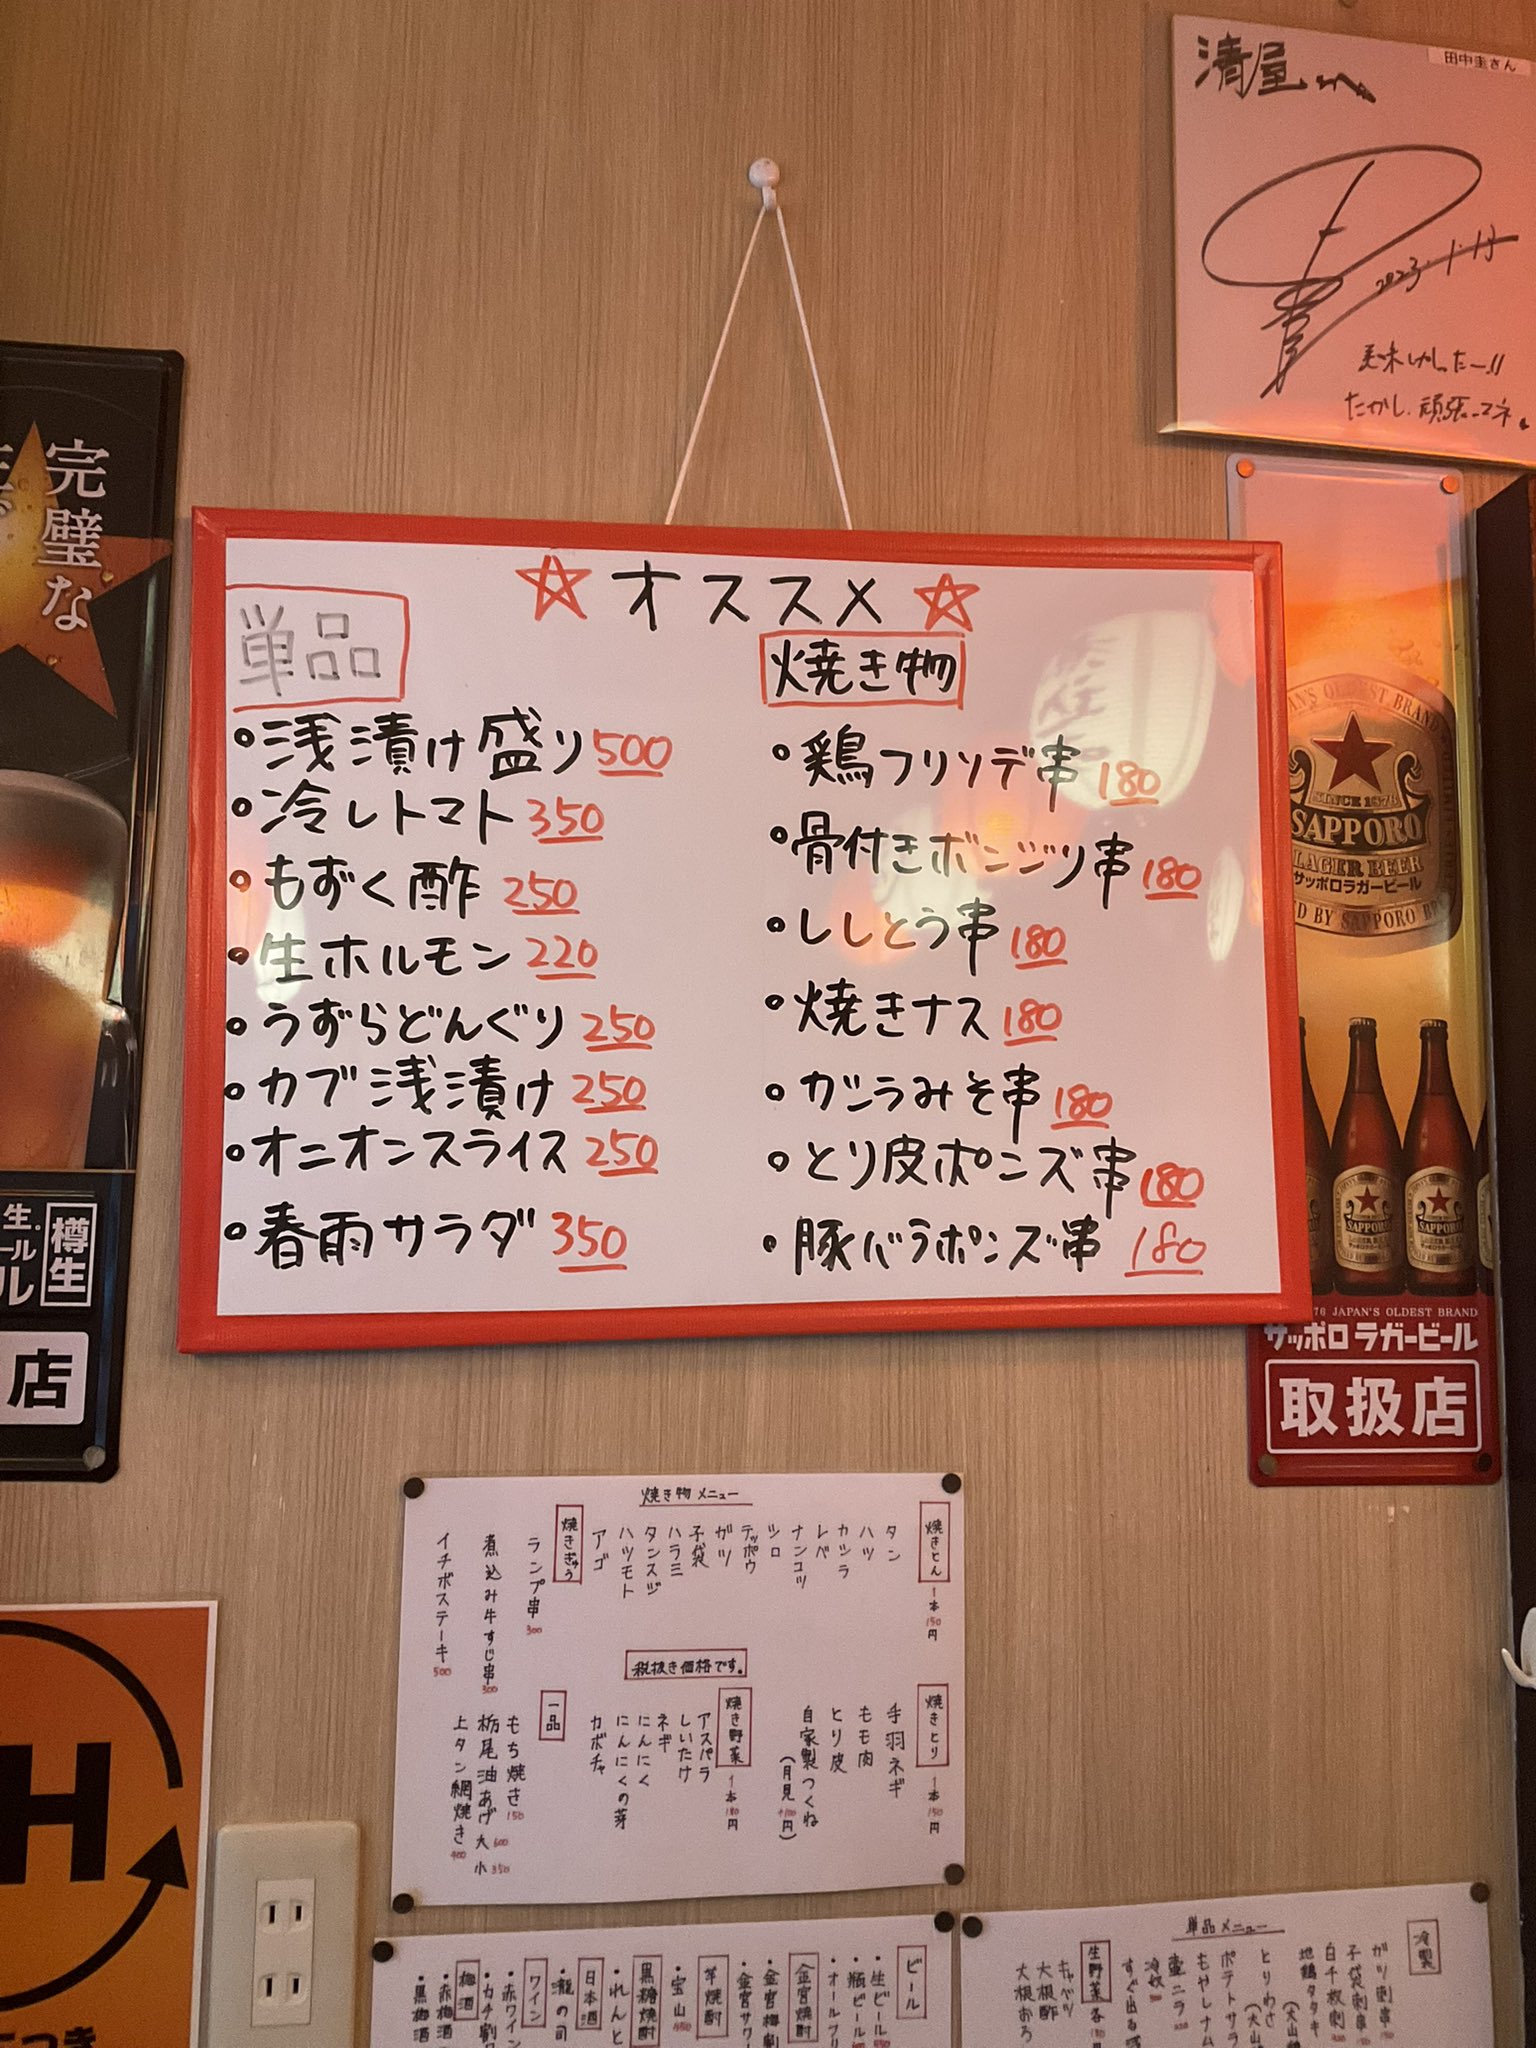 清屋さんへ
田中圭さん
2023.1.13
美味しかったー!!
たかし、頑張ってネ。
完璧な
樽生
店
☆オススメ☆
単品
・浅漬け盛り 500
・冷しトマト 350
・もずく酢 250
・生ホルモン 220
・うずらどんぐり 250
・カブ浅漬け 250
・オニオンスライス 250
・春雨サラダ 350
焼き物
・鶏フリソデ串 180
・骨付きボンジリ串 180
・ししとう串 180
・焼きナス 180
・ガツうみそ串 180
・とり皮ポンズ串 180
・豚バラポンズ串 180
JAPAN'S OLDEST BRAND
SINCE 1876
SAPPORO
LAGER BEER
サッポロラガービール
JAPAN'S OLDEST BRAND
サッポロ ラガービール
取扱店
焼き物メニュー
焼きとん 1本150円
タン
ハツ
カシラ
レバ
ナンコツ
シロ
テッポウ
ガツ
子袋
ハラミ
タンスジ
ハツモト
アゴ
焼きぎゅう
ランプ串 300
煮込み牛すじ串 300
イチボステーキ 500
税抜き価格です。
焼きとり 1本150円
手羽ネギ
もも肉
とり皮
自家製つくね
(月見+100円)
焼き野菜 1本180円
アスパラ
しいたけ
ネギ
にんにく
にんにくの芽
カボチャ
一品
もち焼き 150
栃尾油あげ 大 600
小 350
上タン網焼き 400
ビール
・生ビール
・瓶ビール
・オールフリ
金宮焼酎
・金宮梅割
・金宮サワ
芋焼酎
・宝山
黒糖焼酎
・れんと
日本酒
・瀧の司
ワイン
・赤ワイン
・カチ割
梅酒
・赤梅酒
・黒梅酒
単品メニュー
冷製
ガツ刺串
子袋刺串
白千枚刺
地鶏タタキ
とりわさ
ポテトサラ
もやしナム
冷奴
すぐ出る
生野菜各
キャベツ
大根酢
大根おろ
H